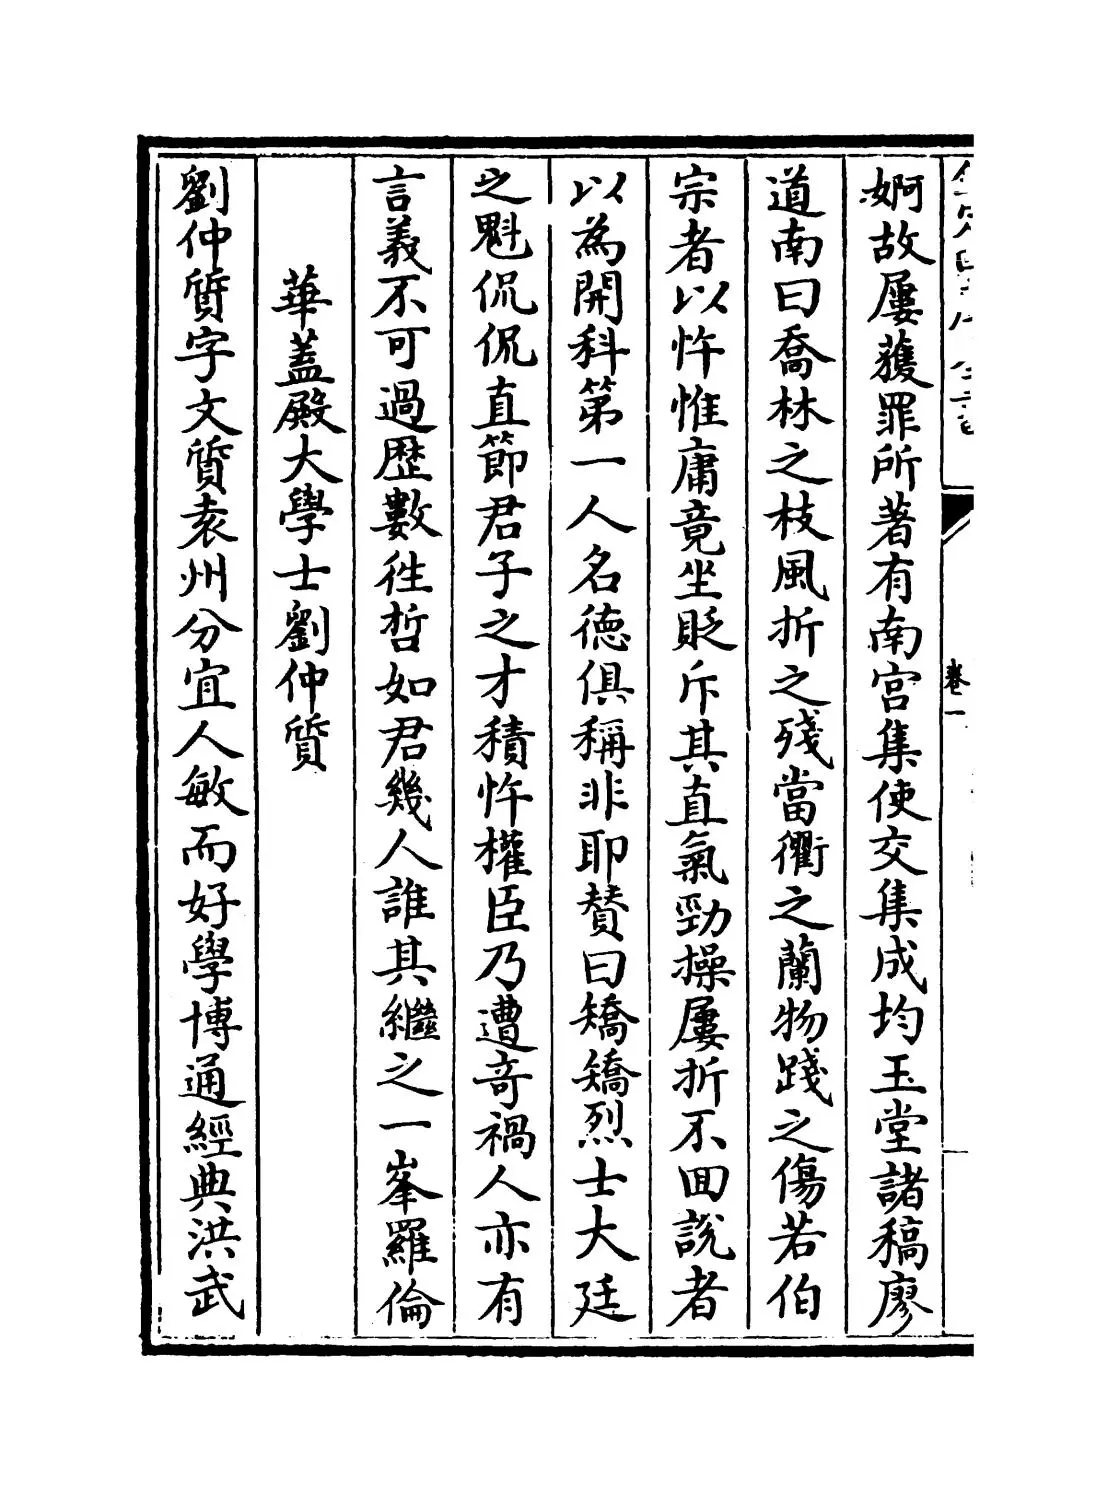 卷一
婀故屢獲罪所著有南宫集使交集成均玉堂諸稿廖
道南曰喬林之枝風折之殘當衢之蘭物踐之傷若伯
宗者以忤惟庸竟坐貶斥其直氣勁操屢折不回説者
以為開科第一人名德俱稱非耶賛曰矯矯烈士大廷
之魁侃侃直節君子之才積忤權臣乃遭竒禍人亦有
言義不可過歴數徃哲如君幾人誰其繼之一峯羅倫
華蓋殿大學士劉仲質
劉仲質字文質袁州分宜人敏而好學博通經典洪武